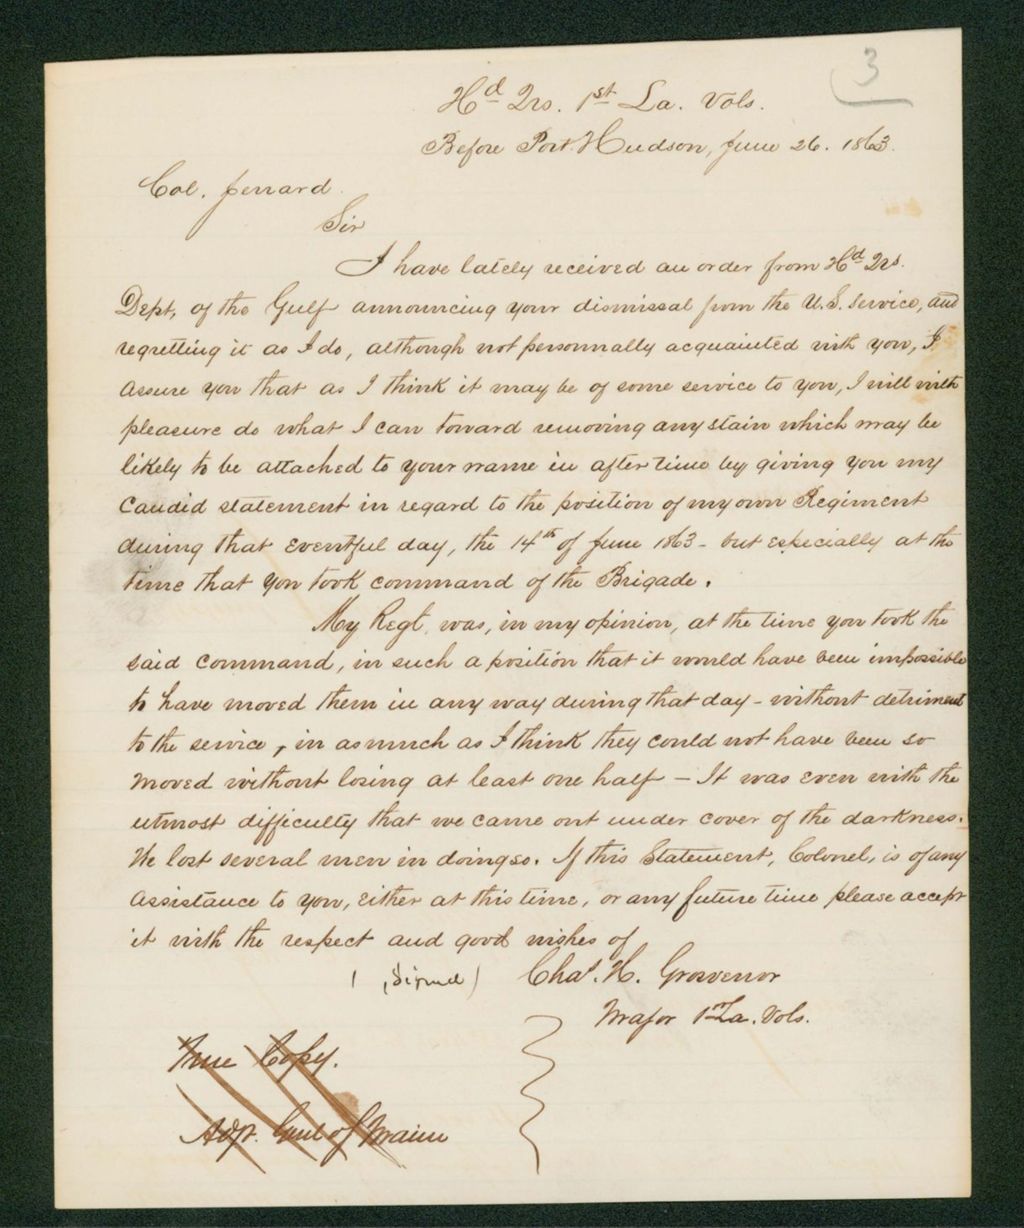 3
Hd Qrs. 1st La. Vols.
Before Port Hudson, June 26. 1863.
Col. Jerrard.
Sir
I have lately received an order from Hd Qrs.
Dept, of the Gulf announcing your dismissal from the U.S. Service, and
regretting it as I do, although not personnally acquainted with you, I
assure you that as I think it may be of some service to you, I will with
pleasure do what I can toward removing any stain which may be
likely to be attached to your name in after time by giving you my
Candid statement in regard to the position of my own Regiment
during that eventful day, the 14th of June 1863 - but especially at the
time that you took command of the Brigade.
My Regt. was, in my opinion, at the time you took the
said command, in such a position that it would have been impossible
to have moved them in any way during that day - without detriment
to the service, in as much as I think they could not have been so
moved without losing at least one half - It was even with the
utmost difficulty that we came out under cover of the darkness.
We lost several men in doing so. If this Statement, Colonel, is of any
assistance to you, either at this time, or any future time please accept
it with the respect and good wishes of
(Signed) Chas. H. Grosvenor
Major 1st La. Vols.
True Copy.
Adjt. Genl of Maine